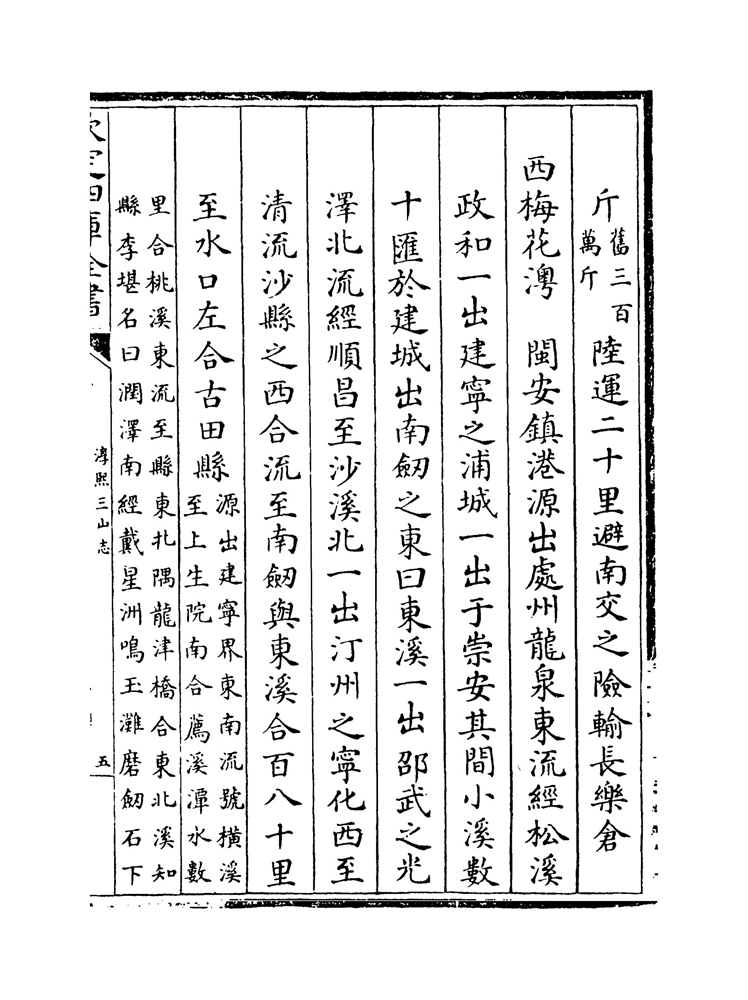 斤舊三百萬斤陸運二十里避南交之險輸長樂倉
西梅花灣　閩安鎮港源出處州龍泉東流經松溪
政和一出建寧之浦城一出于崇安其間小溪數
十匯於建城出南劒之東曰東溪一出邵武之光
澤北流經順昌至沙溪北一出汀州之寧化西至
清流沙縣之西合流至南劒與東溪合百八十里
至水口左合古田縣源出建寧界東南流號橫溪至上生院南合薦溪潭水數
里合桃溪東流至縣東北隅龍津橋合東北溪知
縣李堪名曰潤澤南經戴星洲鳴玉灘磨劒石下
欽定四庫全書
淳熙三山志
五